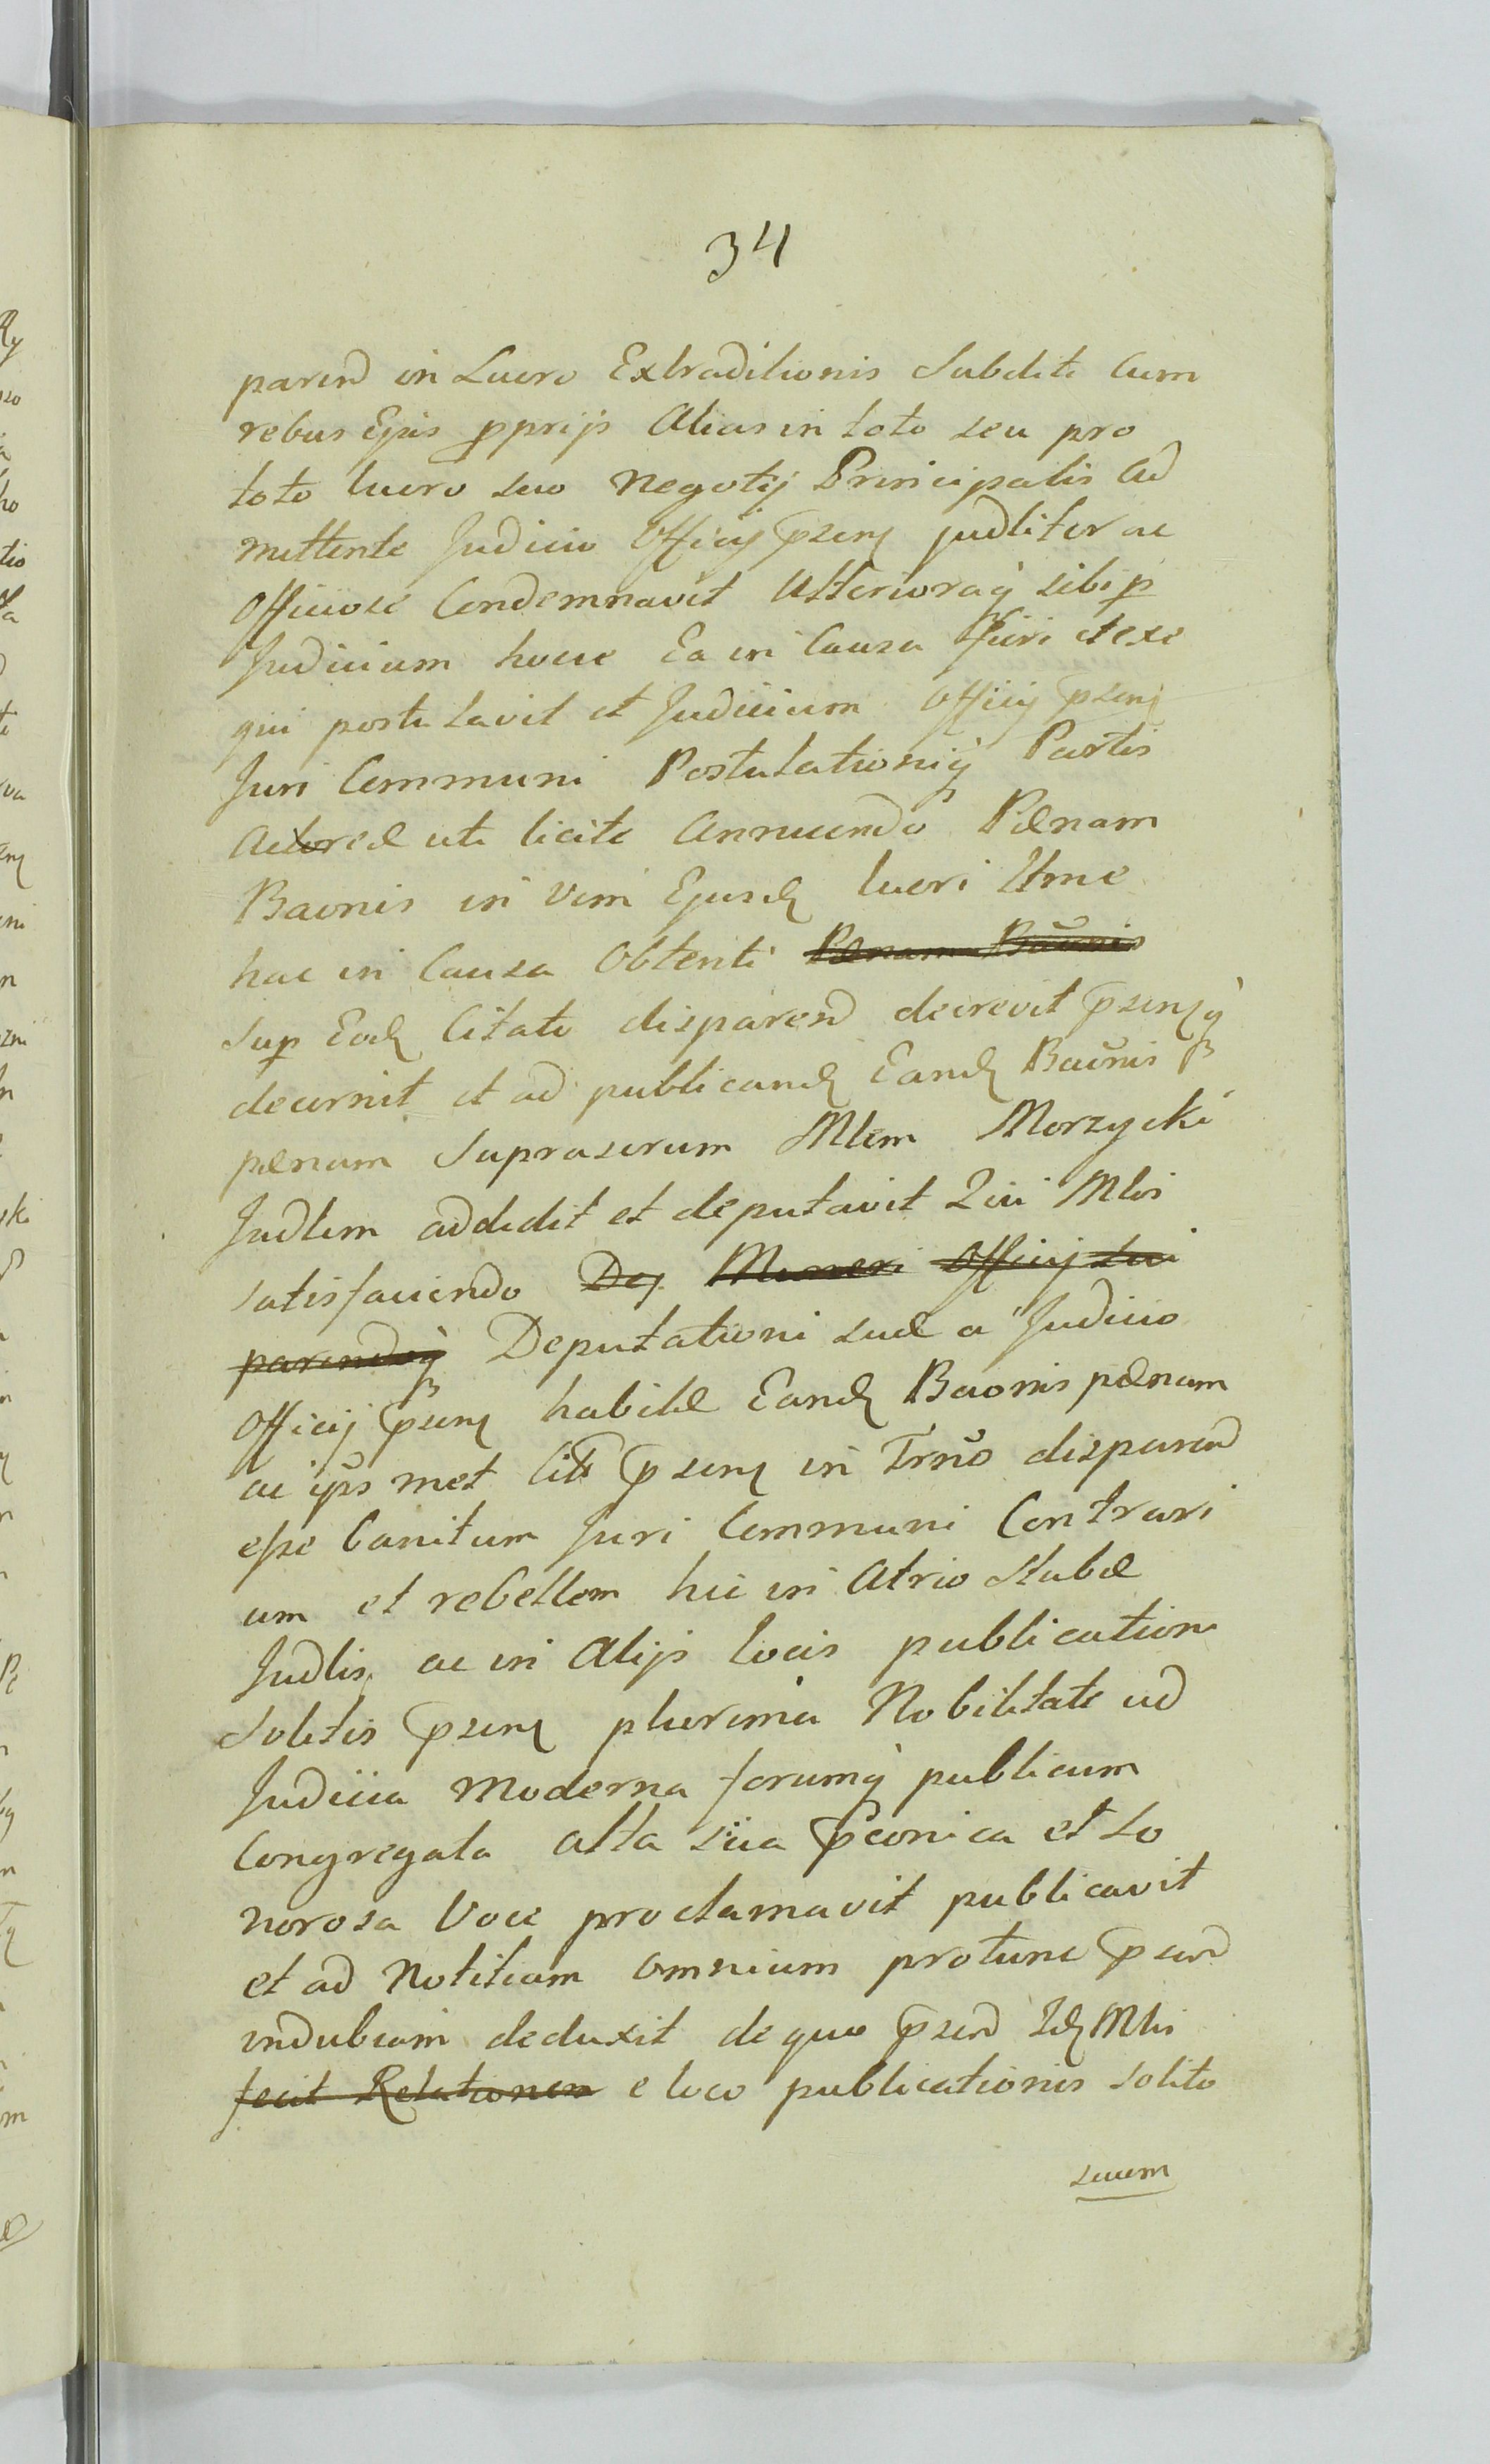 34
parend in Lucro Extraditionis Subditi Cum
rebus Ejus pprijs Alias in toto seu pro
toto lucro suo Negotij Principalis Ad
mittente Judicio Officij psens judliter ac
Officiose Condemnavit Ulterioraq sibi p
Judicium hocce Ea in Causa Juri et exe
qui postulavit et Judicium Officij psens
Juri Communi Postulationiq Partis
Actoreæ uti licite Annuendo Pænam
Baonis in vim Ejusd lucri Itme
hac in Causa Obtenti Pænam Baonis
Sup Eod Citato disparend decrevit psensq
decernit et ad publicand Eand Baonis
pænam suprascrum Mlem Morzycki
Judlem addidit et deputavit Qui Mlis
satisfaciendo Dep Muneri Officij sui
parendoq Deputationi suæ a Judicio
Officij psens habitæ Eand Baonis pænam
ac ips met Cit psens in Trno disparend
esse Banitum Juri Communi Contrari
um et rebellem hic in Atrio Stubæ
Judlis ac in Alijs locis publicationi
Solitis psens plurima Nobilitate ad
Judicia Moderna forumq publicum
Congregata alta sua pconica et so
norosa Voce proclamavit publicavit
et ad Notitiam omnium protunc psend
indubiam deduxit de quo psend Id Mlis
fecit Relationem e loco publicationis solito
suum